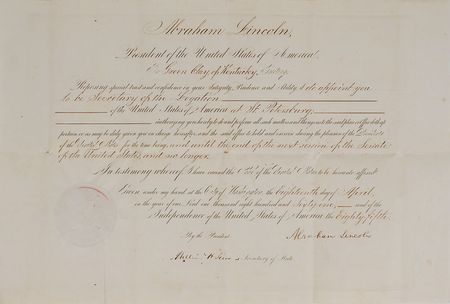 Abraham Lincoln,
President of the United States of America
To Green Clay of Kentucky, Greeting
Reposing special trust and confidence in your Integrity, Prudence and Ability, I do appoint you
to be Secretary of the Legation
of the United States of America at St. Petersburg
authorizing you hereby to do and perform all such matters and things as to the said place or Office do
or as may be duly given you in charge hereafter, and the said office to hold and exercise during the pleasure of the President
of the United States for the time being, and until the end of the next session of the Senate
of the United States, and no longer.
In testimony whereof, I have caused the Seal of the United States to be hereunto affixed
Given under my hand at the City of Washington, the eighteenth day of April
in the year of our Lord one thousand eight hundred and sixty one, and of the
Independence of the United States of America, the Eighty fifth.
By the President
Abraham Lincoln
Secretary of State